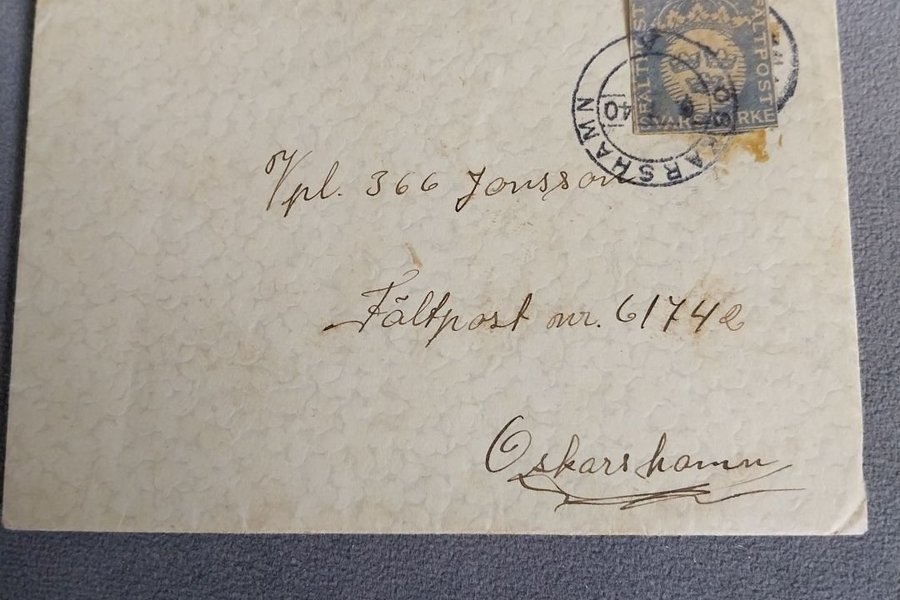 FÄLTPOST
FÄLTPOST
SVARSMÄRKE
OSKARSHAMN
40
Vpl. 366 Jonsson
Fältpost nr. 6174 e
Oskarshamn